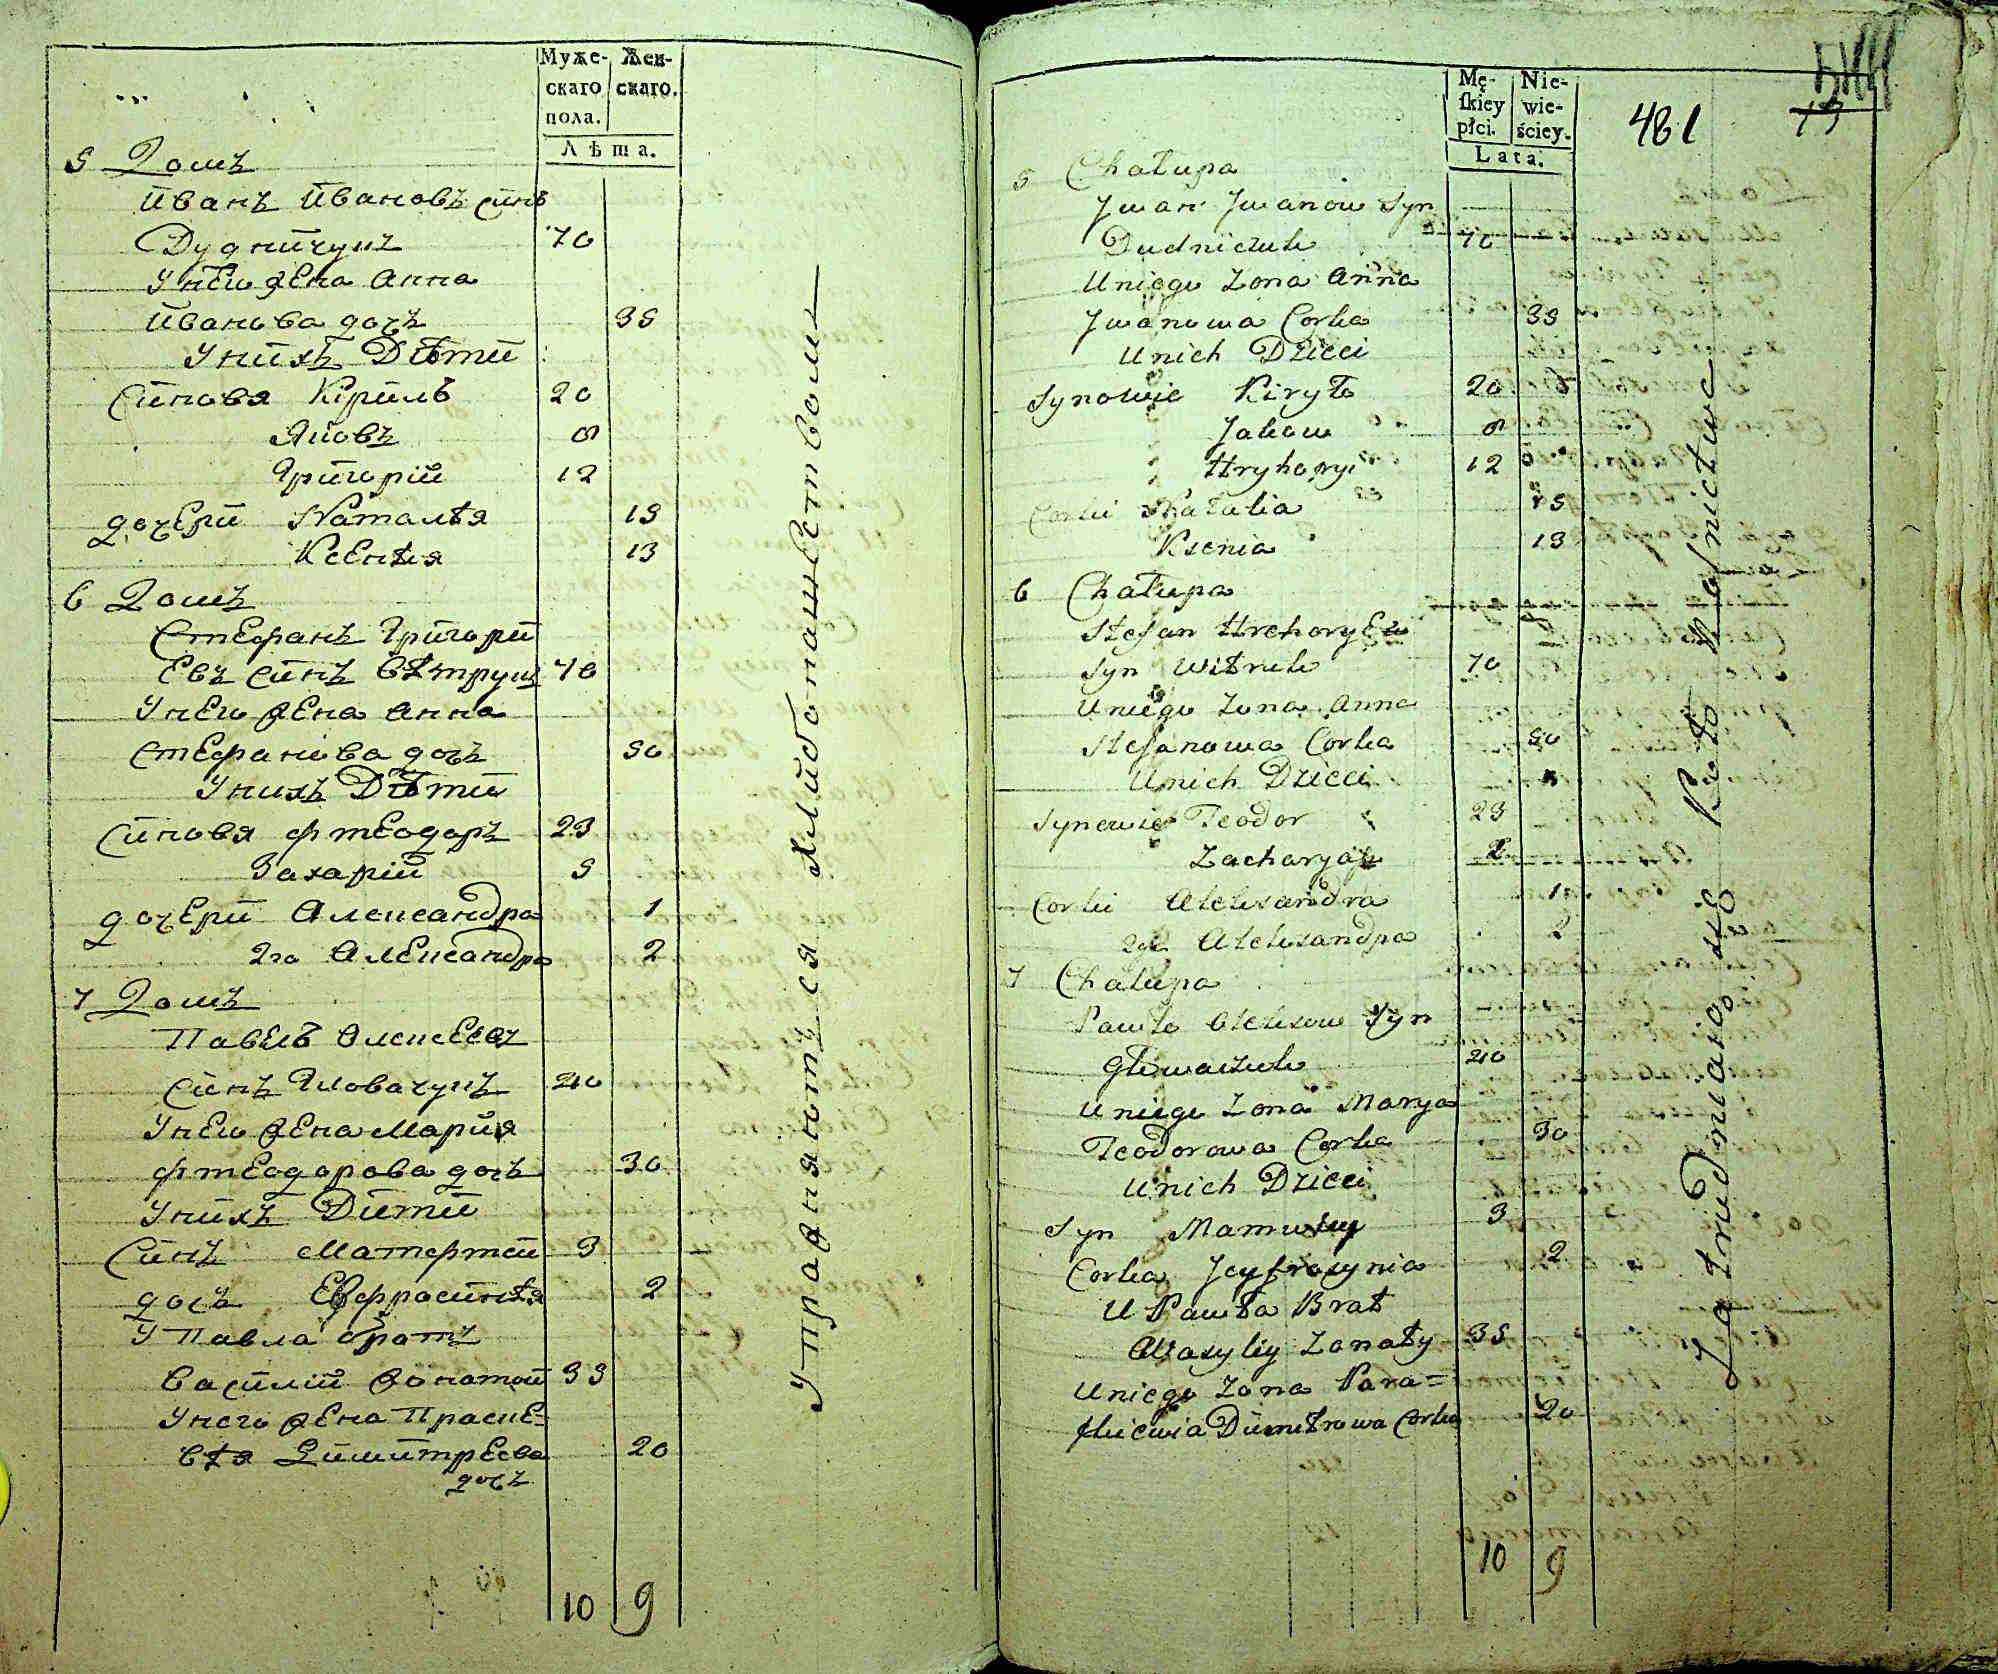 Муже-
скаго
пола.
Жен-
скаго.
Лѣта.
5 Домъ
Иванъ Ивановъ синъ
Дудничукъ 70
У него жена Анна
Иванова дочъ 35
У нихъ Дѣти
Синовя Кірилъ 20
Яковъ 8
Григорій 12
дочери Наталѣя 15
Ксенѣя 13
6 Домъ
Стефанъ Григори
Евъ синъ Вѣтрукъ 70
У него жена Анна
Стефанова дочъ 50
У нихъ Дѣти
Синовя Фтеодоръ 23
Захарій 5
дочери Александра 1
2га Александра 2
7 Домъ
Павелъ Алексеевъ
синъ Гловачукъ 40
У него жена Мария
Фтеодорова дочъ 30
У нихъ Дити
Синъ Матефтей 3
дочъ Евфросинѣя 2
У Павла братъ
Василій жонатой 35
У него жена Праске-
вѣя Димитреева 20
дочъ
10 9
Упражняютъся Хлибопашествомъ
Mę-
skiey
płci.
Nie-
wie-
ściey.
Lata.
481
13
5 Chałupa
Jwan Jwanow Syn
Dudniczuk 70
Uniego Zona Anna
Jwanowa Corka 35
Unich Dzieci
Synowie Kiryło 20
Jakow 8
Hryhoryi 12
Corki Natalia 15
Ksenia 13
6 Chałupa
Stefan Hrehoryew
Syn Witruk 70
Uniego Zona Anna
Stefanowa Corka 50
Unich Dzieci
Synowie Teodor 23
Zacharyasz
Corki Aleksandra 1
2ga Aleksandra 2
7 Chałupa
Pawło Aleksow Syn
Głowaczuk 40
Uniego Zona Marya
Teodorowa Corka 30
Unich Dzieci
Syn 3
Corka Jeyfrosynia 2
U Pawła Brat
Wasyliy Zonaty 35
Uniego Zona Para=
skiewia Dimitrowa Corka 20
10 9
Zatrudniaią się Rolnictwe